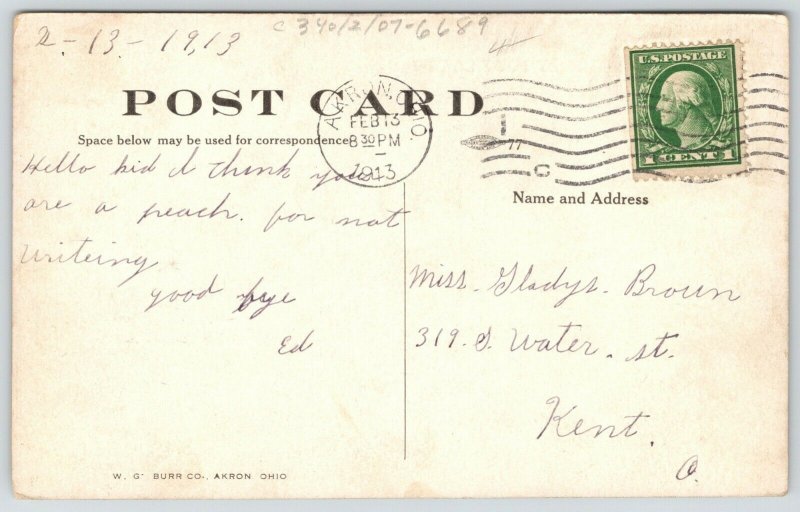 2-13-1913
c 340/2/07-6689
POST CARD
AKRON, OHIO.
FEB 13
8 30 PM
1913
U.S. POSTAGE
1 CENT 1
Space below may be used for correspondence
Name and Address
Hello kid I think you
are a peach. for not
writeing
good bye
Ed
Miss. Gladys. Brown
319. S. Water. st.
Kent.
O.
W. G. BURR CO., AKRON, OHIO